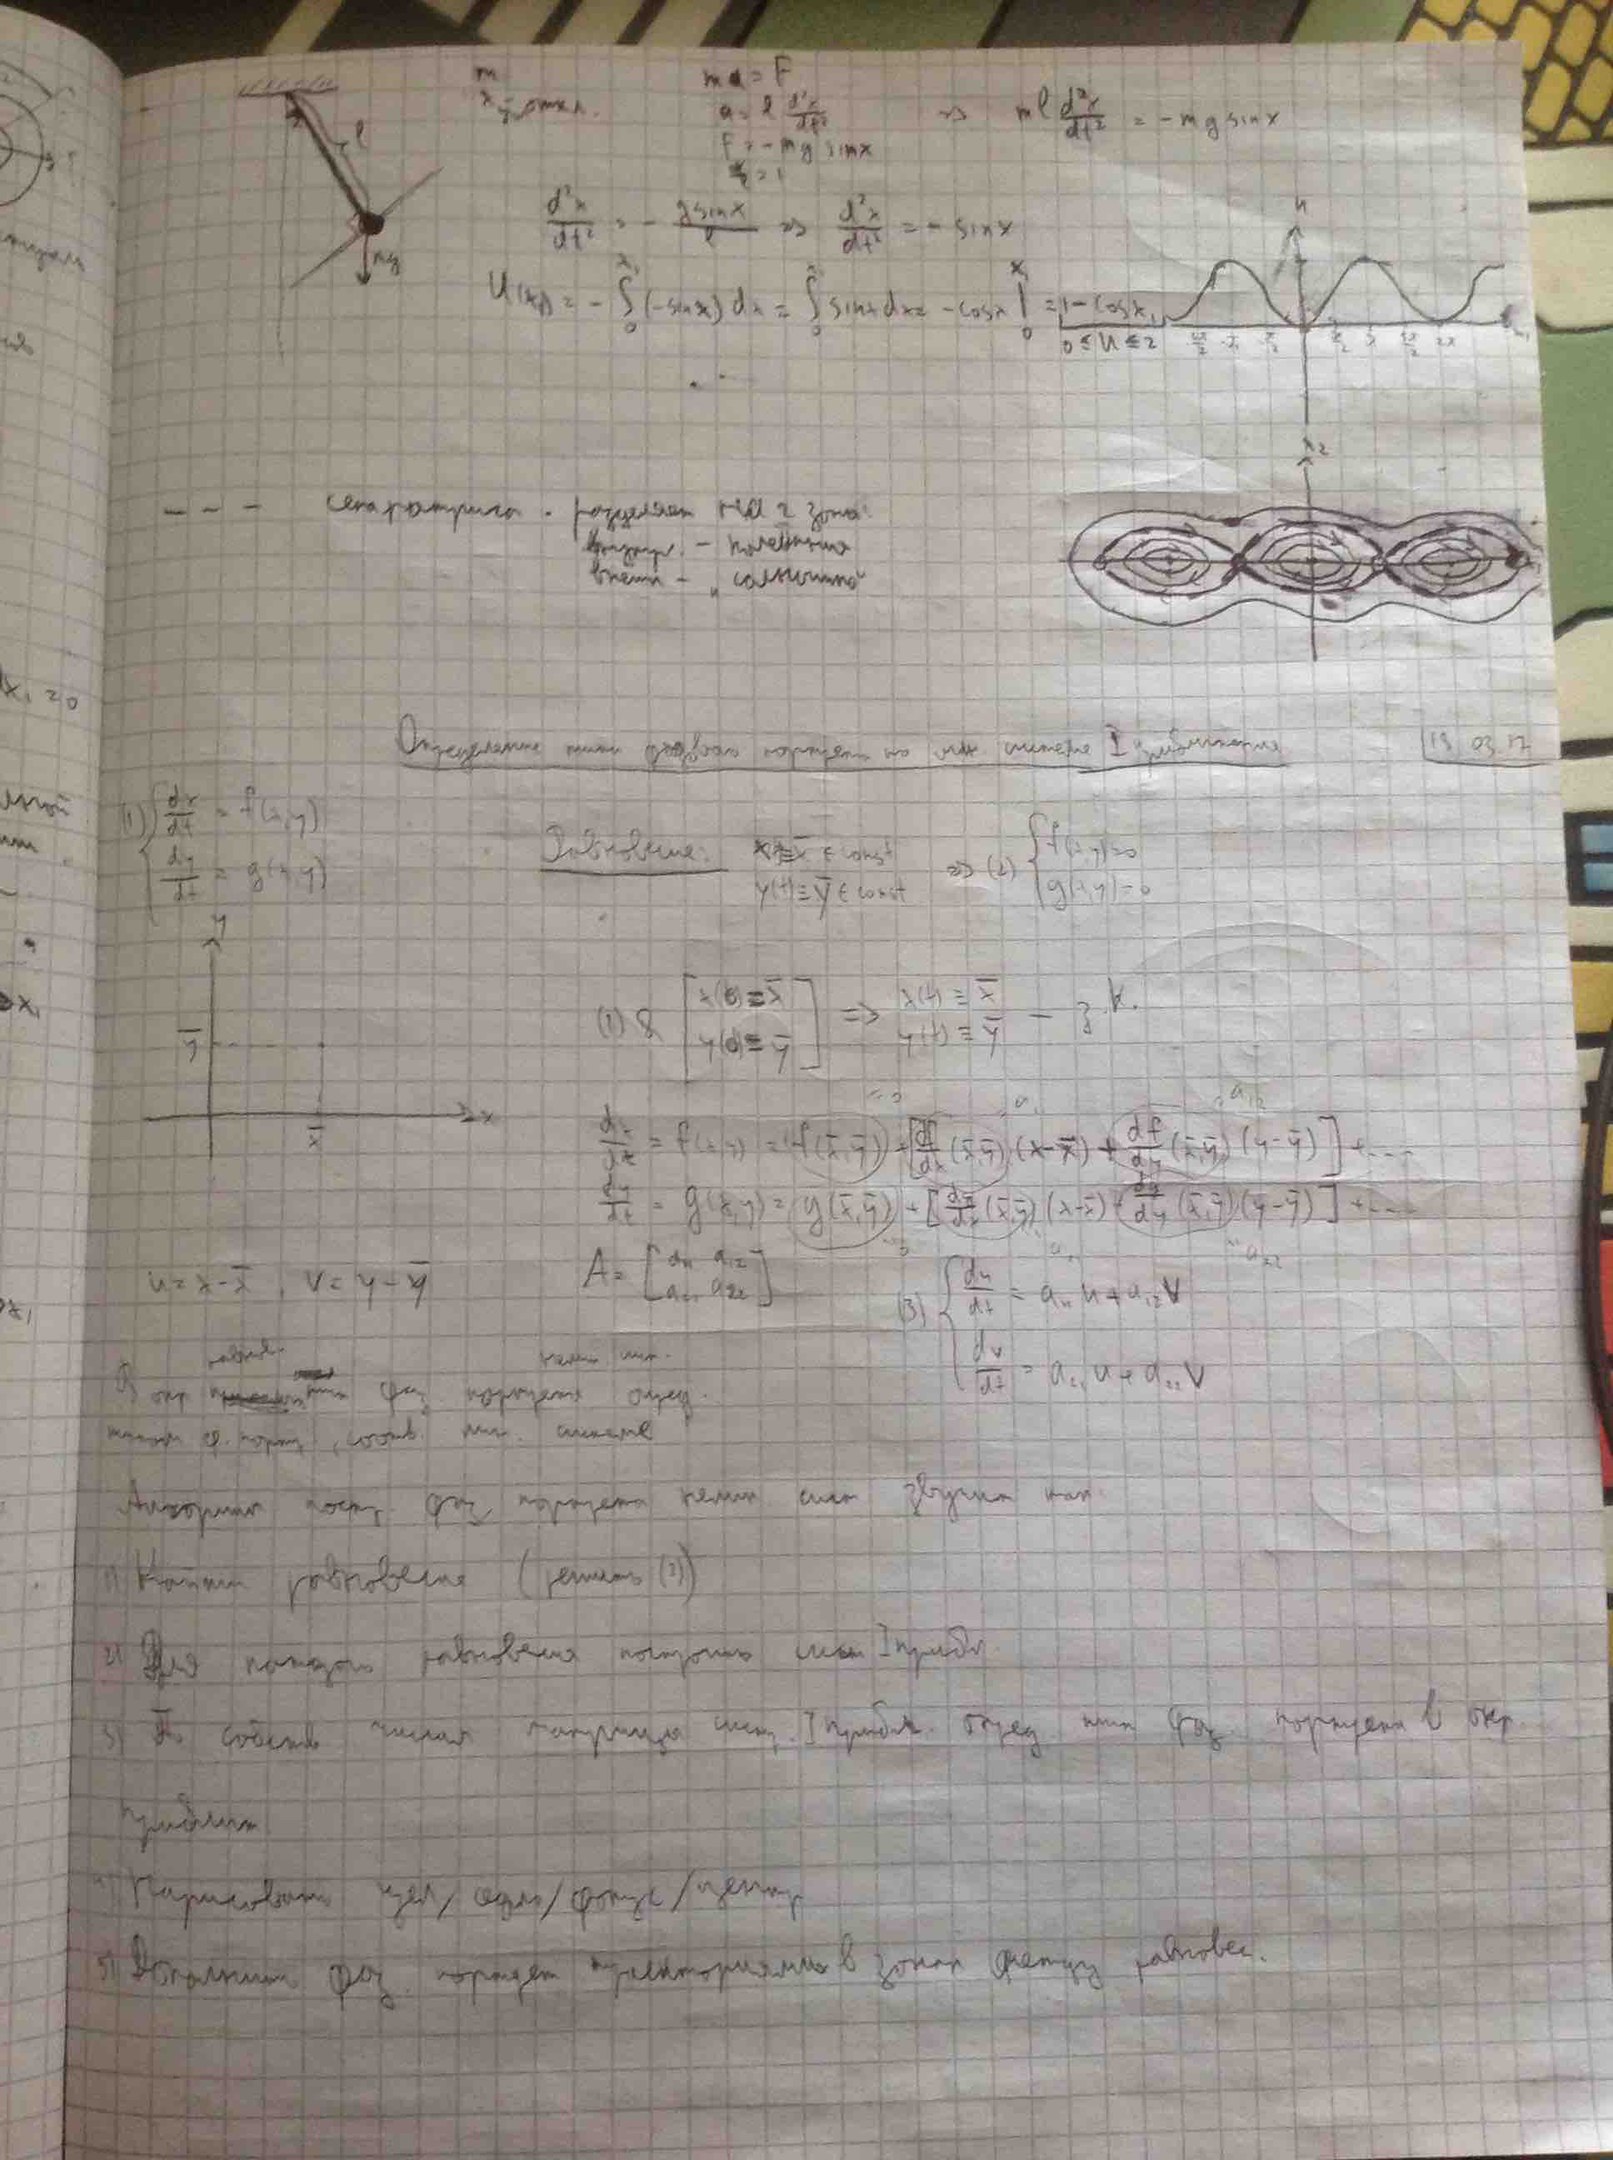 m
ma = F
x - откл.
a = l d²x/dt²
=> ml d²x/dt² = -mg sinx
F = -mg sinx
l
mg
d²x/dt² = - g sinx / l => d²x/dt² = - sinx
U(x₁) = - ∫₀^x₁ (-sinx) dx = ∫₀^x₁ sinx dx = -cosx |₀^x₁ = 1 - cosx₁
0 ≤ U ≤ 2
u
x₂
--- сепаратриса. разделяет на 2 зоны:
внутр. - колебания
внешн -
Определение типа фазового портрета по лин. системе I приближения
19 03 17
(1) { dx/dt = f(x,y)
dy/dt = g(x,y)
Равновесие: x(t) ≡ x̄ ∈ const
y(t) ≡ ȳ ∈ const
=> (2) { f(x,y)=0
g(x,y)=0
y
ȳ
x̄
x
(1) & [ x(0) = x̄
y(0) = ȳ ] => x(t) ≡ x̄
y(t) ≡ ȳ - з.к.
dx/dt = f(x,y) = f(x̄,ȳ) + [ df/dx (x̄,ȳ) (x-x̄) + df/dy (x̄,ȳ) (y-ȳ) ] + ...
=0 a₁₁ = a₁₂
dy/dt = g(x,y) = g(x̄,ȳ) + [ dg/dx (x̄,ȳ) (x-x̄) + dg/dy (x̄,ȳ) (y-ȳ) ] + ...
=0 a₂₁ = a₂₂
u = x - x̄, v = y - ȳ
A = [ a₁₁ a₁₂
a₂₁ a₂₂ ]
(3) { du/dt = a₁₁u + a₁₂v
dv/dt = a₂₁u + a₂₂v
В окр равнов. фаз портрета нелин сис. опред.
типом ф. портр, соотв. лин. системе
Алгоритм постр. фаз портрета нелин сист
1) Найти равновесия (решить (2))
2) Для каждого равновесия построить сист I прибл.
3) По собств числам матрицы сист. I прибл. опред. тип фаз. портрета в окр.
приближ
4) Нарисовать узел/седло/фокус/центр
5) Дополнить фаз. портрет траекториями в зонах между равновес.